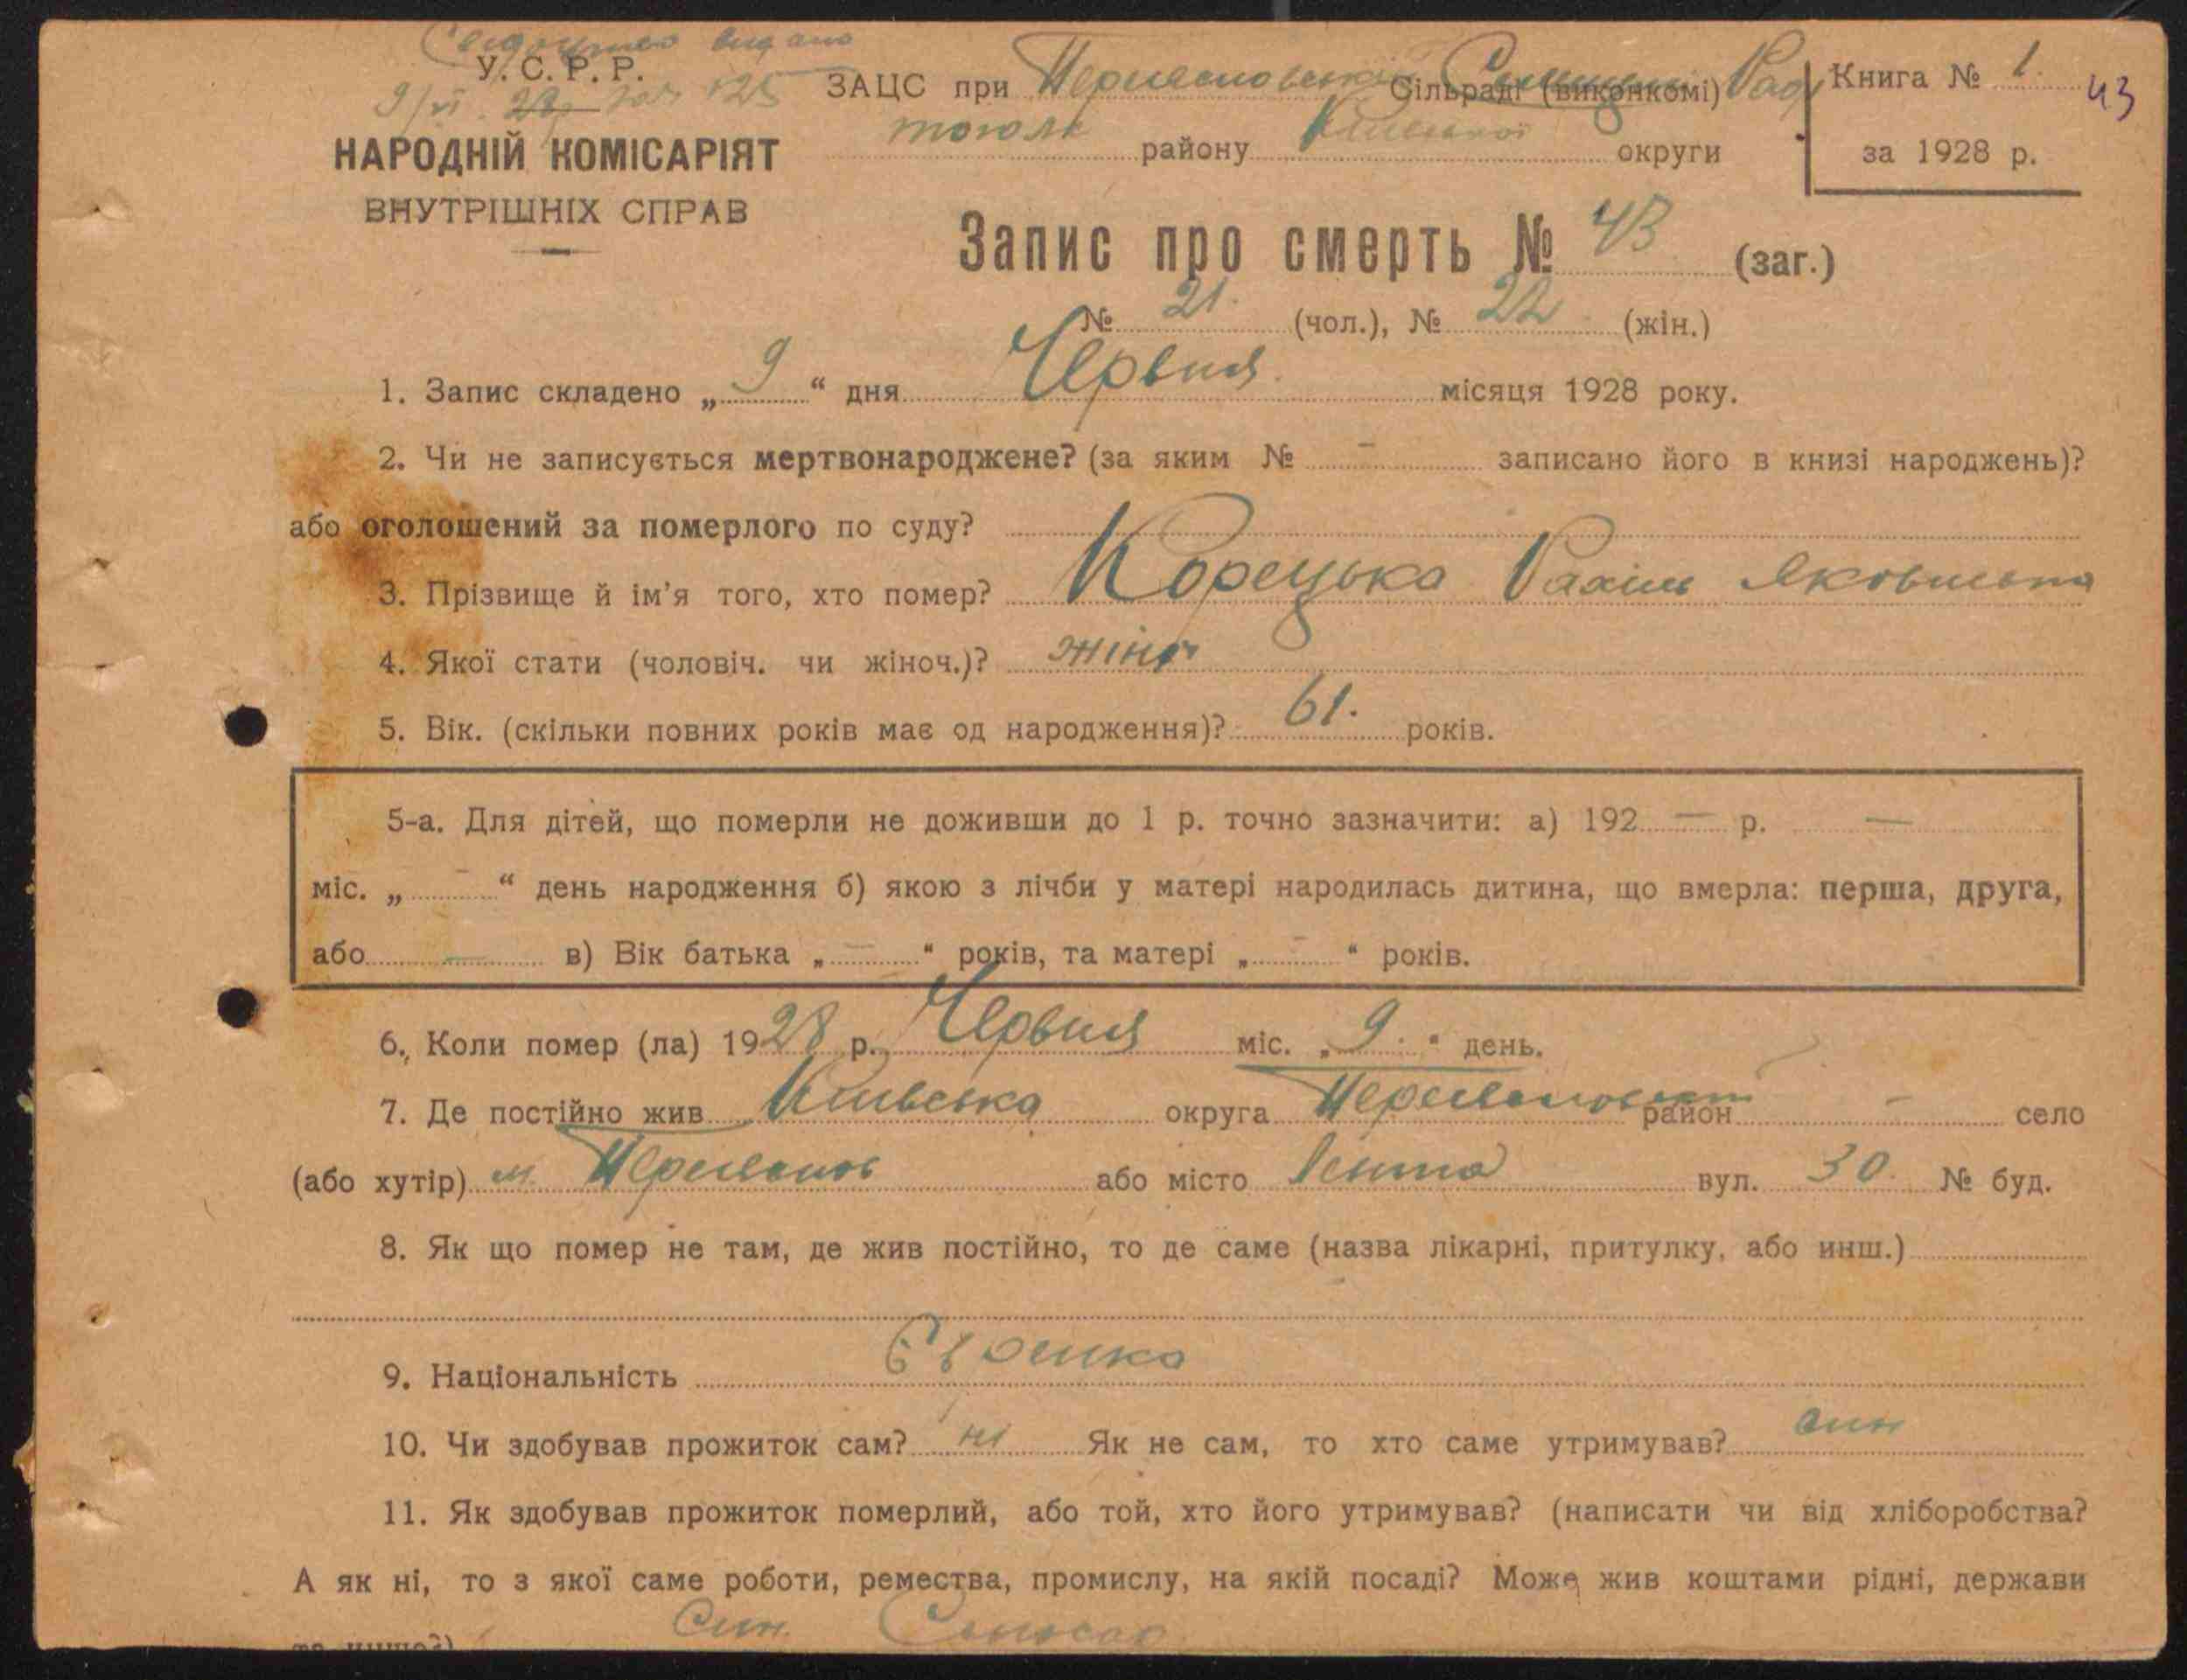 Свідоцтво видано
У. С. Р. Р.
9/VI 28 125
ЗАЦС при Переяславській Сільраді (виконкомі) Раді
Книга № 1. 43
тогож району Київської округи
за 1928 р.
НАРОДНІЙ КОМІСАРІЯТ
ВНУТРІШНІХ СПРАВ
Запис про смерть № 43 (заг.)
№ 21. (чол.), № 22 (жін.)
1. Запис складено „ 9 “ дня Червня місяця 1928 року.
2. Чи не записується мертвонароджене? (за яким № – записано його в книзі народжень)?
або оголошений за померлого по суду?
3. Прізвище й ім'я того, хто помер? Корецька Рахіль Яковлевна
4. Якої стати (чоловіч. чи жіноч.)? жіноч
5. Вік. (скільки повних років має од народження)? 61. років.
5-а. Для дітей, що померли не доживши до 1 р. точно зазначити: а) 192 — р. —
міс. „ – “ день народження б) якою з лічби у матері народилась дитина, що вмерла: перша, друга,
або — в) Вік батька „ – “ років, та матері „ – “ років.
6. Коли помер (ла) 1928 р. Червня міс. „ 9. “ день.
7. Де постійно жив Київська округа Переяславський район – село
(або хутір) м. Переяслов або місто Леніна вул. 30. № буд.
8. Як що помер не там, де жив постійно, то де саме (назва лікарні, притулку, або инш.)
9. Національність Єврейка
10. Чи здобував прожиток сам? ні Як не сам, то хто саме утримував? син
11. Як здобував прожиток померлий, або той, хто його утримував? (написати чи від хліборобства?
А як ні, то з якої саме роботи, ремества, промислу, на якій посаді? Може жив коштами рідні, держави
та инше?) Син.